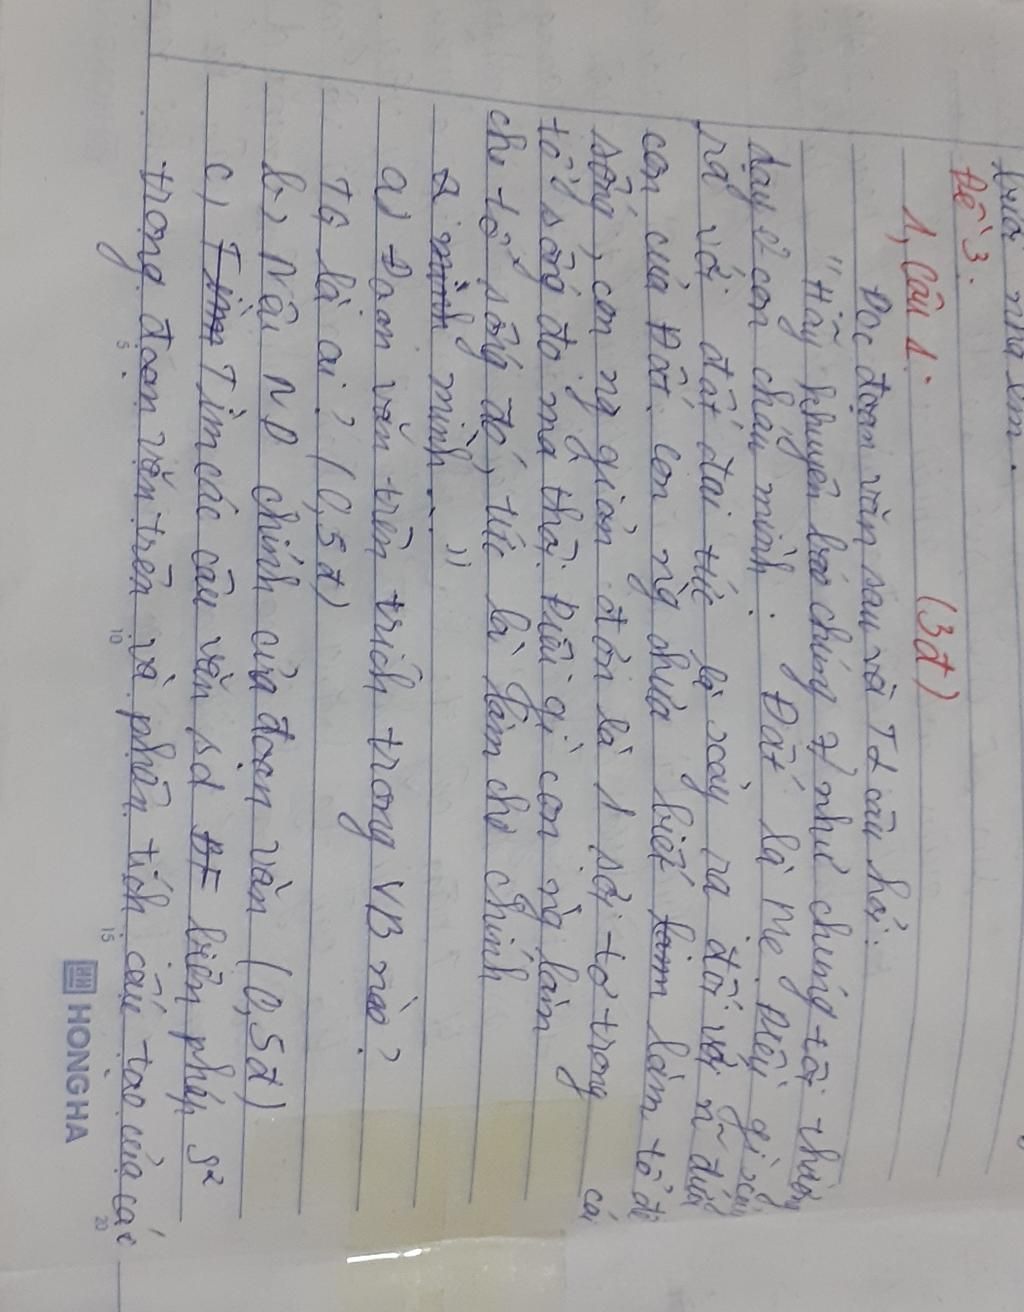 nhà em.
Đề 3.
1, Câu 1. (3đ)
Đọc đoạn văn sau và TL câu hỏi:
"Hãy khuyên bảo chúng # như chúng tôi thường
dạy con cháu mình: Đất là Mẹ. Điều gì xảy
ra với đất đai tức là xảy ra đối với n~ đứa
con của Đất. Con ng chưa biết làm làm tổ để
sống, con ng giản đơn là 1 sợi tơ trong cái
tổ sống đó mà thôi. Điều gì con ng làm
cho tổ sống đó, tức là làm cho chính
mình mình..."
a) Đoạn văn trên trích trong VB nào?
TG là ai? (0,5đ)
b) Nêu ND chính của đoạn văn (0,5đ)
c) Tìm Tìm các câu văn sd biện pháp s²
trong đoạn văn trên và phân tích cấu tạo của các
5
10
15
20
HONG HA